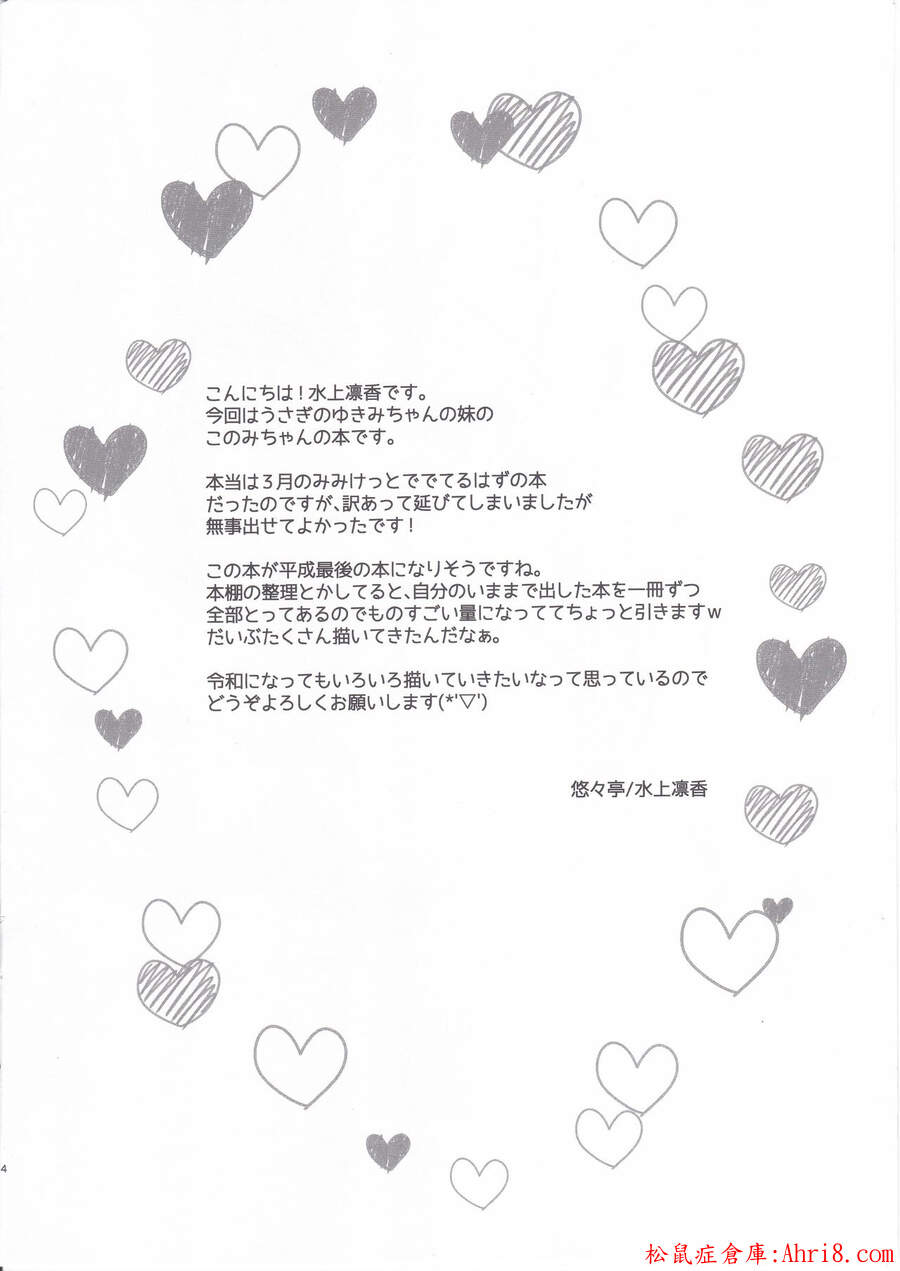 こんにちは！水上凛香です。
今回はうさぎのゆきみちゃんの妹の
このみちゃんの本です。
本当は３月のみみけっとででてるはずの本
だったのですが、訳あって延びてしまいましたが
無事出せてよかったです！
この本が平成最後の本になりそうですね。
本棚の整理とかしてると、自分のいままで出した本を一冊ずつ
全部とってあるのでものすごい量になっててちょっと引きますｗ
だいぶたくさん描いてきたんだなぁ。
令和になってもいろいろ描いていきたいなって思っているので
どうぞよろしくお願いします(*'▽')
悠々亭/水上凛香
4
松鼠症倉庫:Ahri8.com